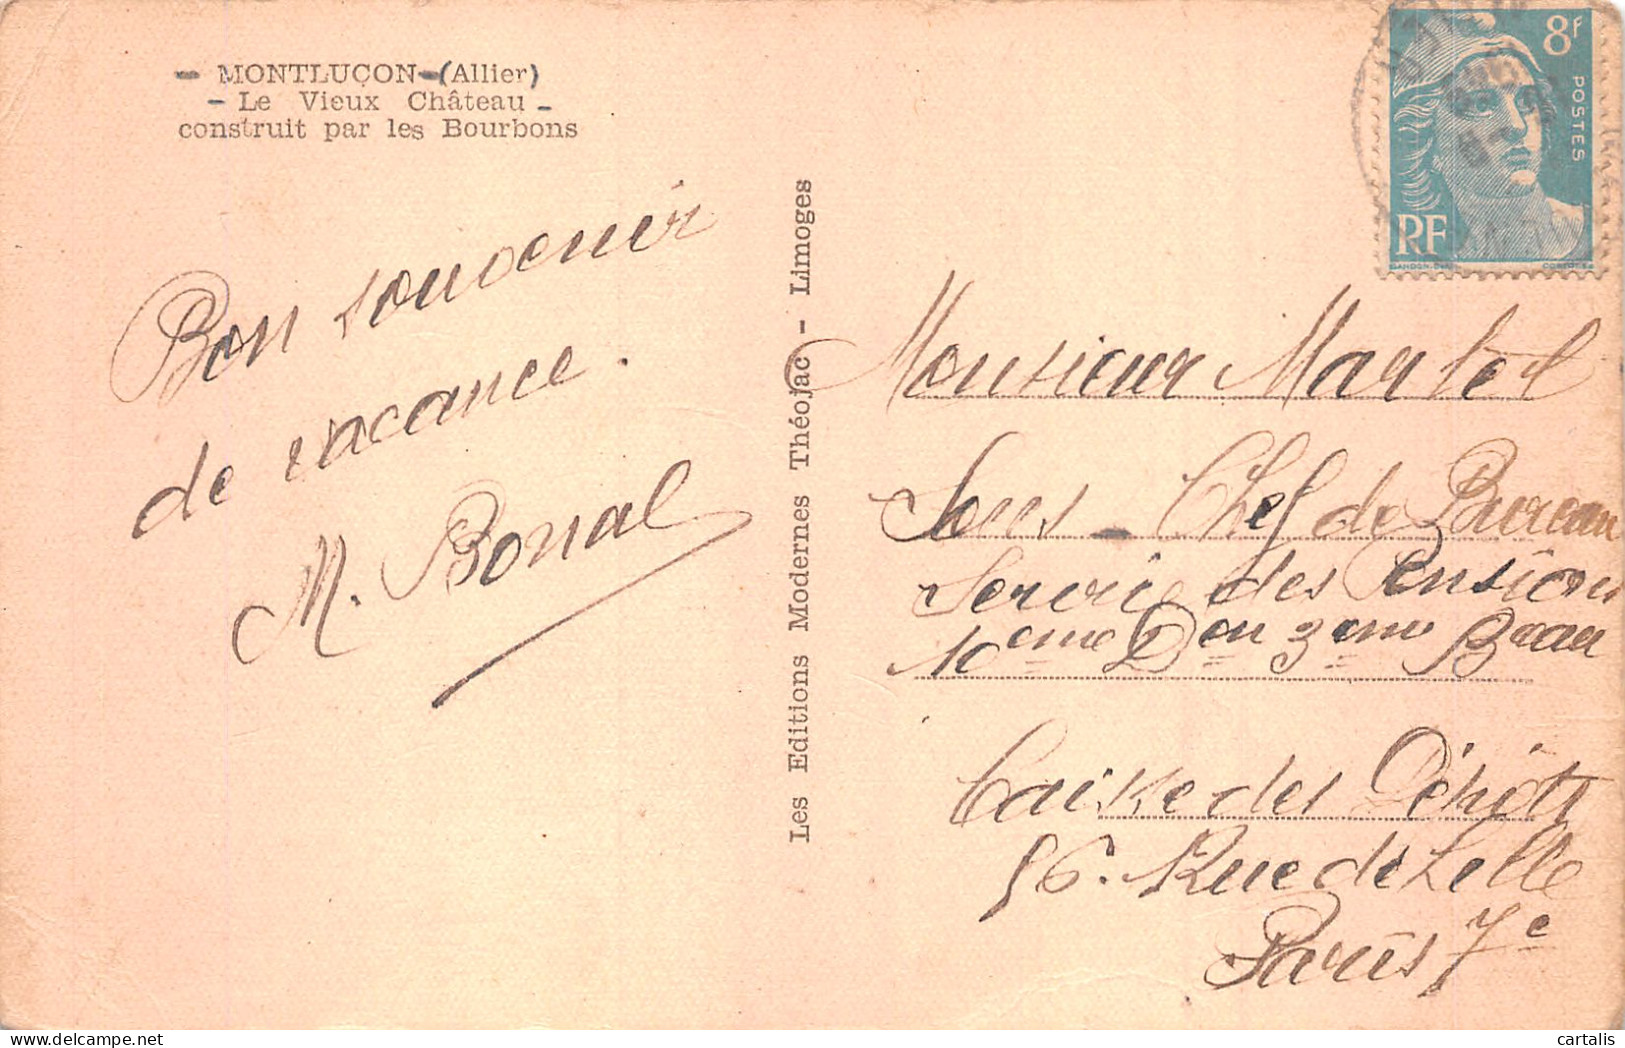 - MONTLUÇON - (Allier)
- Le Vieux Château -
construit par les Bourbons
Bon souvenir
de vacance.
M. Bonal
Les Editions Modernes Théojac - Limoges
8f
POSTES
RF
Monsieur Martel
Sous-Chef de Bureau
Service des Pensions
10eme Don 3eme Beau
Caisse des Dépôts
56. Rue de Lille
Paris 7e
cartalis